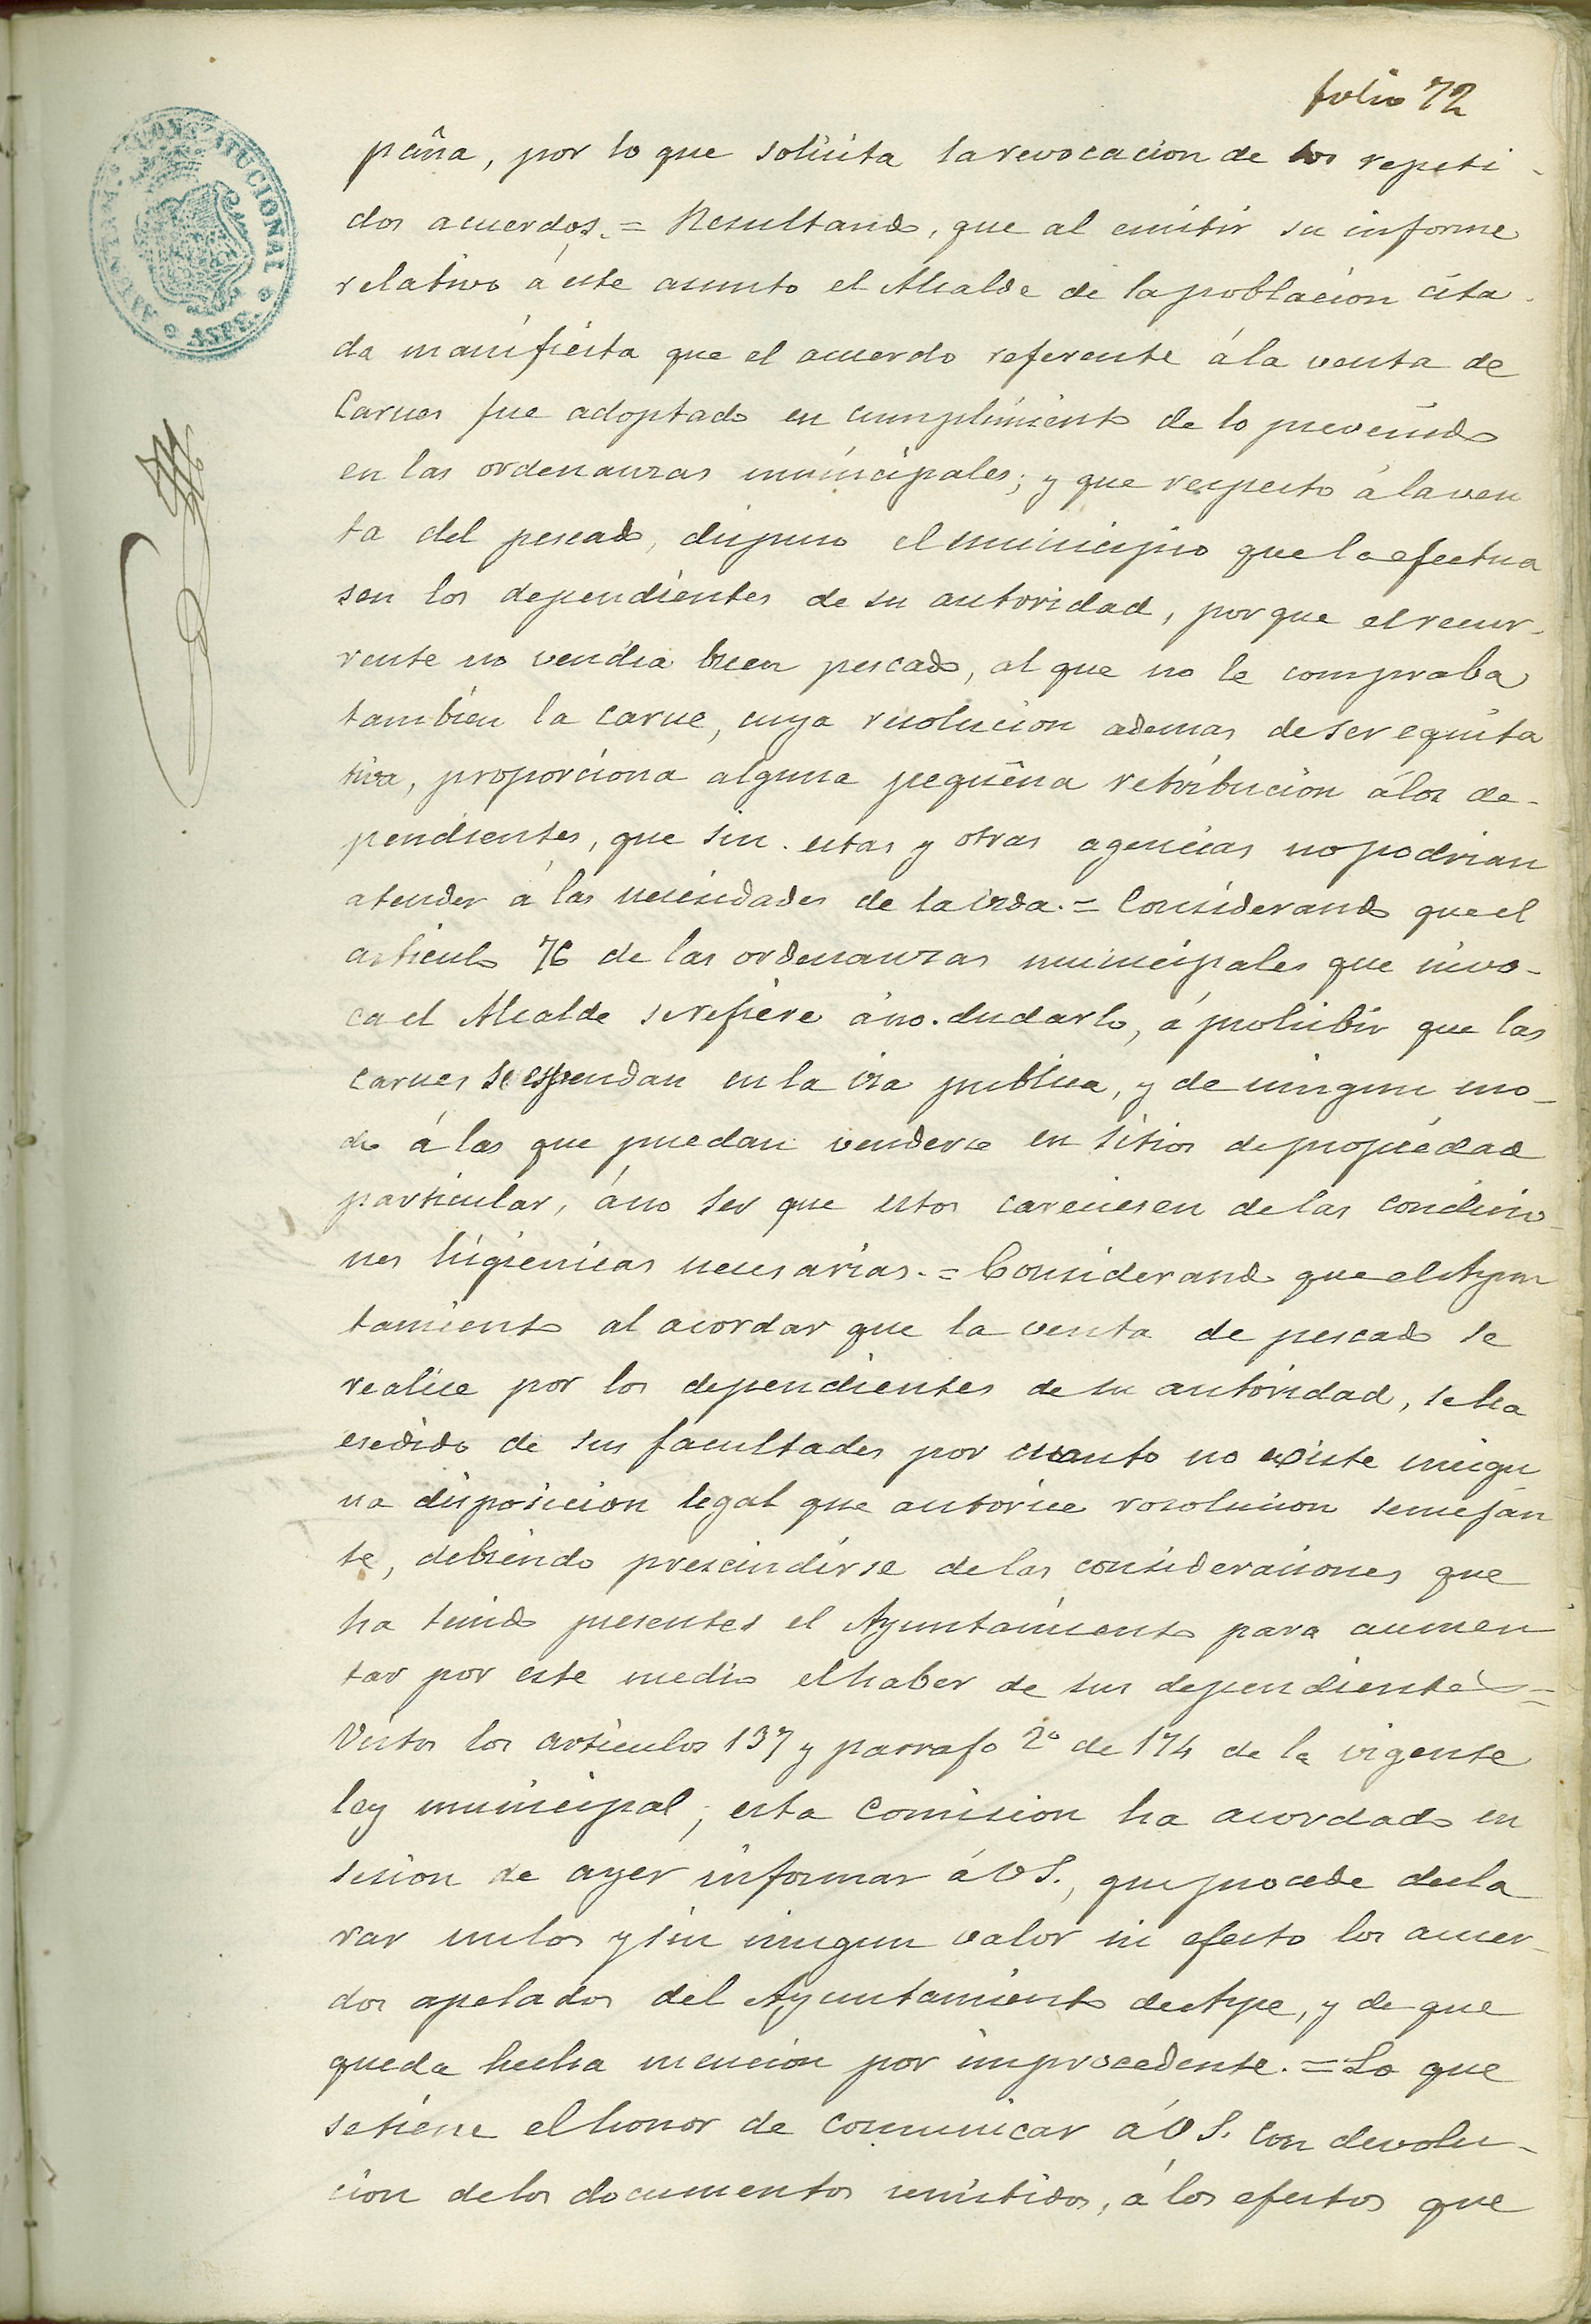 folio 72
paña, por lo que solicita la revocacion de los repeti-
dos acuerdos.= Resultando, que al emitir su informe
relativo á este asunto el Alcalde de la poblacion cita-
da manifiesta que el acuerdo referente á la venta de
Carnes fue adoptado en cumplimiento de lo prevenido
en las ordenanzas municipales; y que respecto á la ven
ta del pescado, dispuso el municipio que la efectua
sen los dependientes de su autoridad, porque el recur-
rente no vendia buen pescado, al que no le compraba
tambien la carne, cuya resolucion ademas de ser equita
tiva, proporciona alguna pequeña retribucion á los de-
pendientes, que sin estas y otras agencias no podrian
atender á las necesidades de la vida.= Considerando que el
articulo 76 de las ordenanzas municipales que invo-
ca el Alcalde se refiere á no dudarlo, á prohibir que las
carnes se espendan en la via publica, y de ningun mo-
do á las que puedan venderse en sitios de propiedad
particular, á no ser que estos careciesen de las condicio-
nes higienicas necesarias.= Considerando que el Ayun
tamiento al acordar que la venta de pescado se
realice por los dependientes de su autoridad, se ha
esedido de sus facultades por cuanto no existe ningu
na disposicion legal que autorice rosolucion semejan
te, debiendo prescindirse de las consideraciones que
ha tenido presentes el Ayuntamiento para aumen
tar por este medio el haber de sus dependientes=
Vistos los articulos 137 y parrafo 2º de 174 de la vigente
ley municipal; esta Comision ha acordado en
sesion de ayer informar á V S., que procede decla
rar nulos y sin ningun valor ni efecto los acuer-
dos apelados del Ayuntamiento de Aspe, y de que
queda hecha mencion por improcedente.= Lo que
se tiene el honor de comunicar á V S. con devolu-
cion de los documentos remitidos, á los efectos que
CONSTITUCIONAL
ASPE